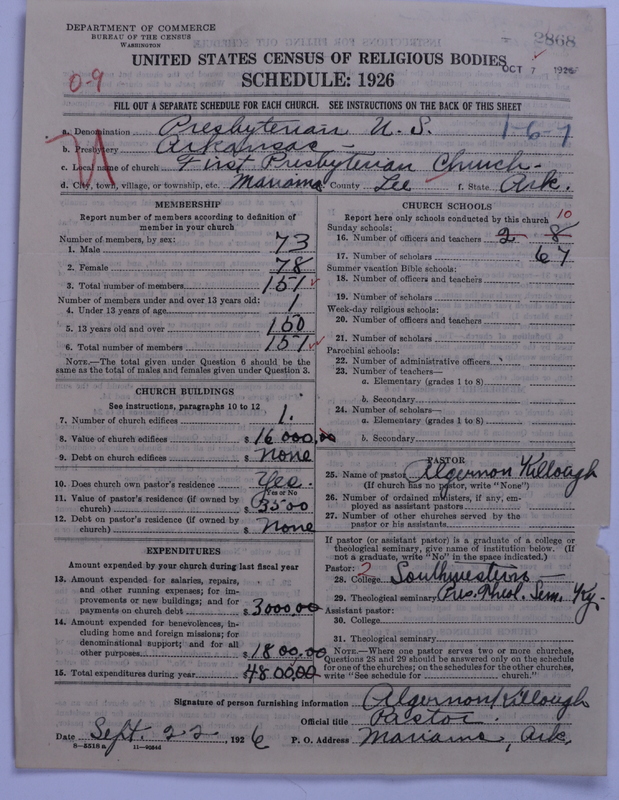 DEPARTMENT OF COMMERCE
BUREAU OF THE CENSUS
WASHINGTON
2868
UNITED STATES CENSUS OF RELIGIOUS BODIES
OCT 7 1926
SCHEDULE: 1926
0-9
FILL OUT A SEPARATE SCHEDULE FOR EACH CHURCH. SEE INSTRUCTIONS ON THE BACK OF THIS SHEET
a. Denomination Presbyterian U. S. 1-6-7
b. Presbytery Arkansas
c. Local name of church First Presbyterian Church
d. City, town, village, or township, etc. Marianna County Lee f. State Ark.
MEMBERSHIP
Report number of members according to definition of
member in your church
Number of members, by sex:
1. Male 73
2. Female 78
3. Total number of members 151
Number of members under and over 13 years old:
4. Under 13 years of age 1
5. 13 years old and over 150
6. Total number of members 151
NOTE.—The total given under Question 6 should be the
same as the total of males and females given under Question 3.
CHURCH BUILDINGS
See instructions, paragraphs 10 to 12
7. Number of church edifices 1.
8. Value of church edifices $ 16 000.00
9. Debt on church edifices $ none
10. Does church own pastor's residence? Yes.
Yes or No
11. Value of pastor's residence (if owned by
church) $ 3500
12. Debt on pastor's residence (if owned by
church) $ none
EXPENDITURES
Amount expended by your church during last fiscal year
13. Amount expended for salaries, repairs,
and other running expenses; for im-
provements or new buildings; and for
payments on church debt $ 3000.00
14. Amount expended for benevolences, in-
cluding home and foreign missions; for
denominational support; and for all
other purposes $ 1800.00
15. Total expenditures during year $ 4800.00
CHURCH SCHOOLS
Report here only schools conducted by this church
10
Sunday schools:
16. Number of officers and teachers 2 8
17. Number of scholars 67
Summer vacation Bible schools:
18. Number of officers and teachers
19. Number of scholars
Week-day religious schools:
20. Number of officers and teachers
21. Number of scholars
Parochial schools:
22. Number of administrative officers
23. Number of teachers—
a. Elementary (grades 1 to 8)
b. Secondary
24. Number of scholars—
a. Elementary (grades 1 to 8)
b. Secondary
PASTOR
25. Name of pastor Algernon Killough
(If church has no pastor, write "None")
26. Number of ordained ministers, if any, em-
ployed as assistant pastors
27. Number of other churches served by the
pastor or his assistants
If pastor (or assistant pastor) is a graduate of a college or
theological seminary, give name of institution below. (If
not a graduate, write "No" in the space indicated.)
Pastor:
28. College Southwestern
29. Theological seminary Pres. Theol. Sem. Ky.
Assistant pastor:
30. College
31. Theological seminary
NOTE.—Where one pastor serves two or more churches,
Questions 28 and 29 should be answered only on the schedule
for one of the churches; on the schedules for the other churches,
write "See schedule for church."
Signature of person furnishing information Algernon Killough
Official title Pastor.
Date Sept. 22, 1926 P. O. Address Marianna, Ark.
8—5518a 11—9084d